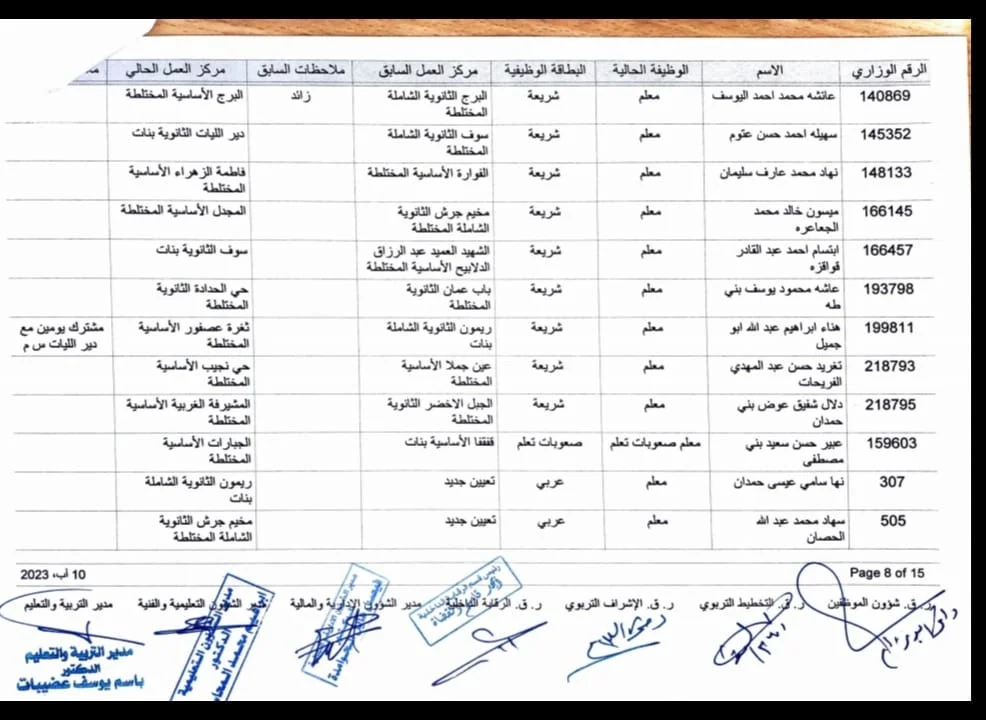 الرقم الوزاري الاسم الوظيفة الحالية البطاقة الوظيفية مركز العمل السابق ملاحظات السابق مركز العمل الحالي
140869 عائشه محمد احمد اليوسف معلم شريعة البرج الثانوية الشاملة المختلطة زائد البرج الأساسية المختلطة
145352 سهيله احمد حسن عتوم معلم شريعة سوف الثانوية الشاملة المختلطة دير الليات الثانوية بنات
148133 نهاد محمد عارف سليمان معلم شريعة الفوارة الأساسية المختلطة فاطمة الزهراء الأساسية المختلطة
166145 ميسون خالد محمد الجعاعره معلم شريعة مخيم جرش الثانوية الشاملة المختلطة المجدل الأساسية المختلطة
166457 ابتسام احمد عبد القادر قواقزه معلم شريعة الشهيد العميد عبد الرزاق الدلابيح الأساسية المختلطة سوف الثانوية بنات
193798 عاشه محمود يوسف بني طه معلم شريعة باب عمان الثانوية المختلطة حي الحدادة الثانوية المختلطة
199811 هناء ابراهيم عبد الله ابو جميل معلم شريعة ريمون الثانوية الشاملة بنات ثغرة عصفور الأساسية المختلطة مشترك يومين مع دير الليات س م
218793 تغريد حسن عبد المهدي الفريحات معلم شريعة عين جملا الأساسية المختلطة حي نجيب الأساسية المختلطة
218795 دلال شفيق عوض بني حمدان معلم شريعة الجبل الاخضر الثانوية المختلطة المشيرفة الغربية الأساسية المختلطة
159603 عبير حسن سعيد بني مصطفى معلم صعوبات تعلم صعوبات تعلم قفقفا الأساسية بنات الجبارات الأساسية المختلطة
307 نها سامي عيسى حمدان معلم عربي تعيين جديد ريمون الثانوية الشاملة بنات
505 سهاد محمد عبد الله الحصان معلم عربي تعيين جديد مخيم جرش الثانوية الشاملة المختلطة
Page 8 of 15 10 آب، 2023
ر. ق. شؤون الموظفين ر. ق. التخطيط التربوي ر. ق. الإشراف التربوي ر. ق. الرقابة الداخلية مدير الشؤون الإدارية والمالية مدير الشؤون التعليمية والفنية مدير التربية والتعليم
مدير الشؤون التعليمية
الدكتور
مدير التربية والتعليم
الدكتور
باسم يوسف عضيبات